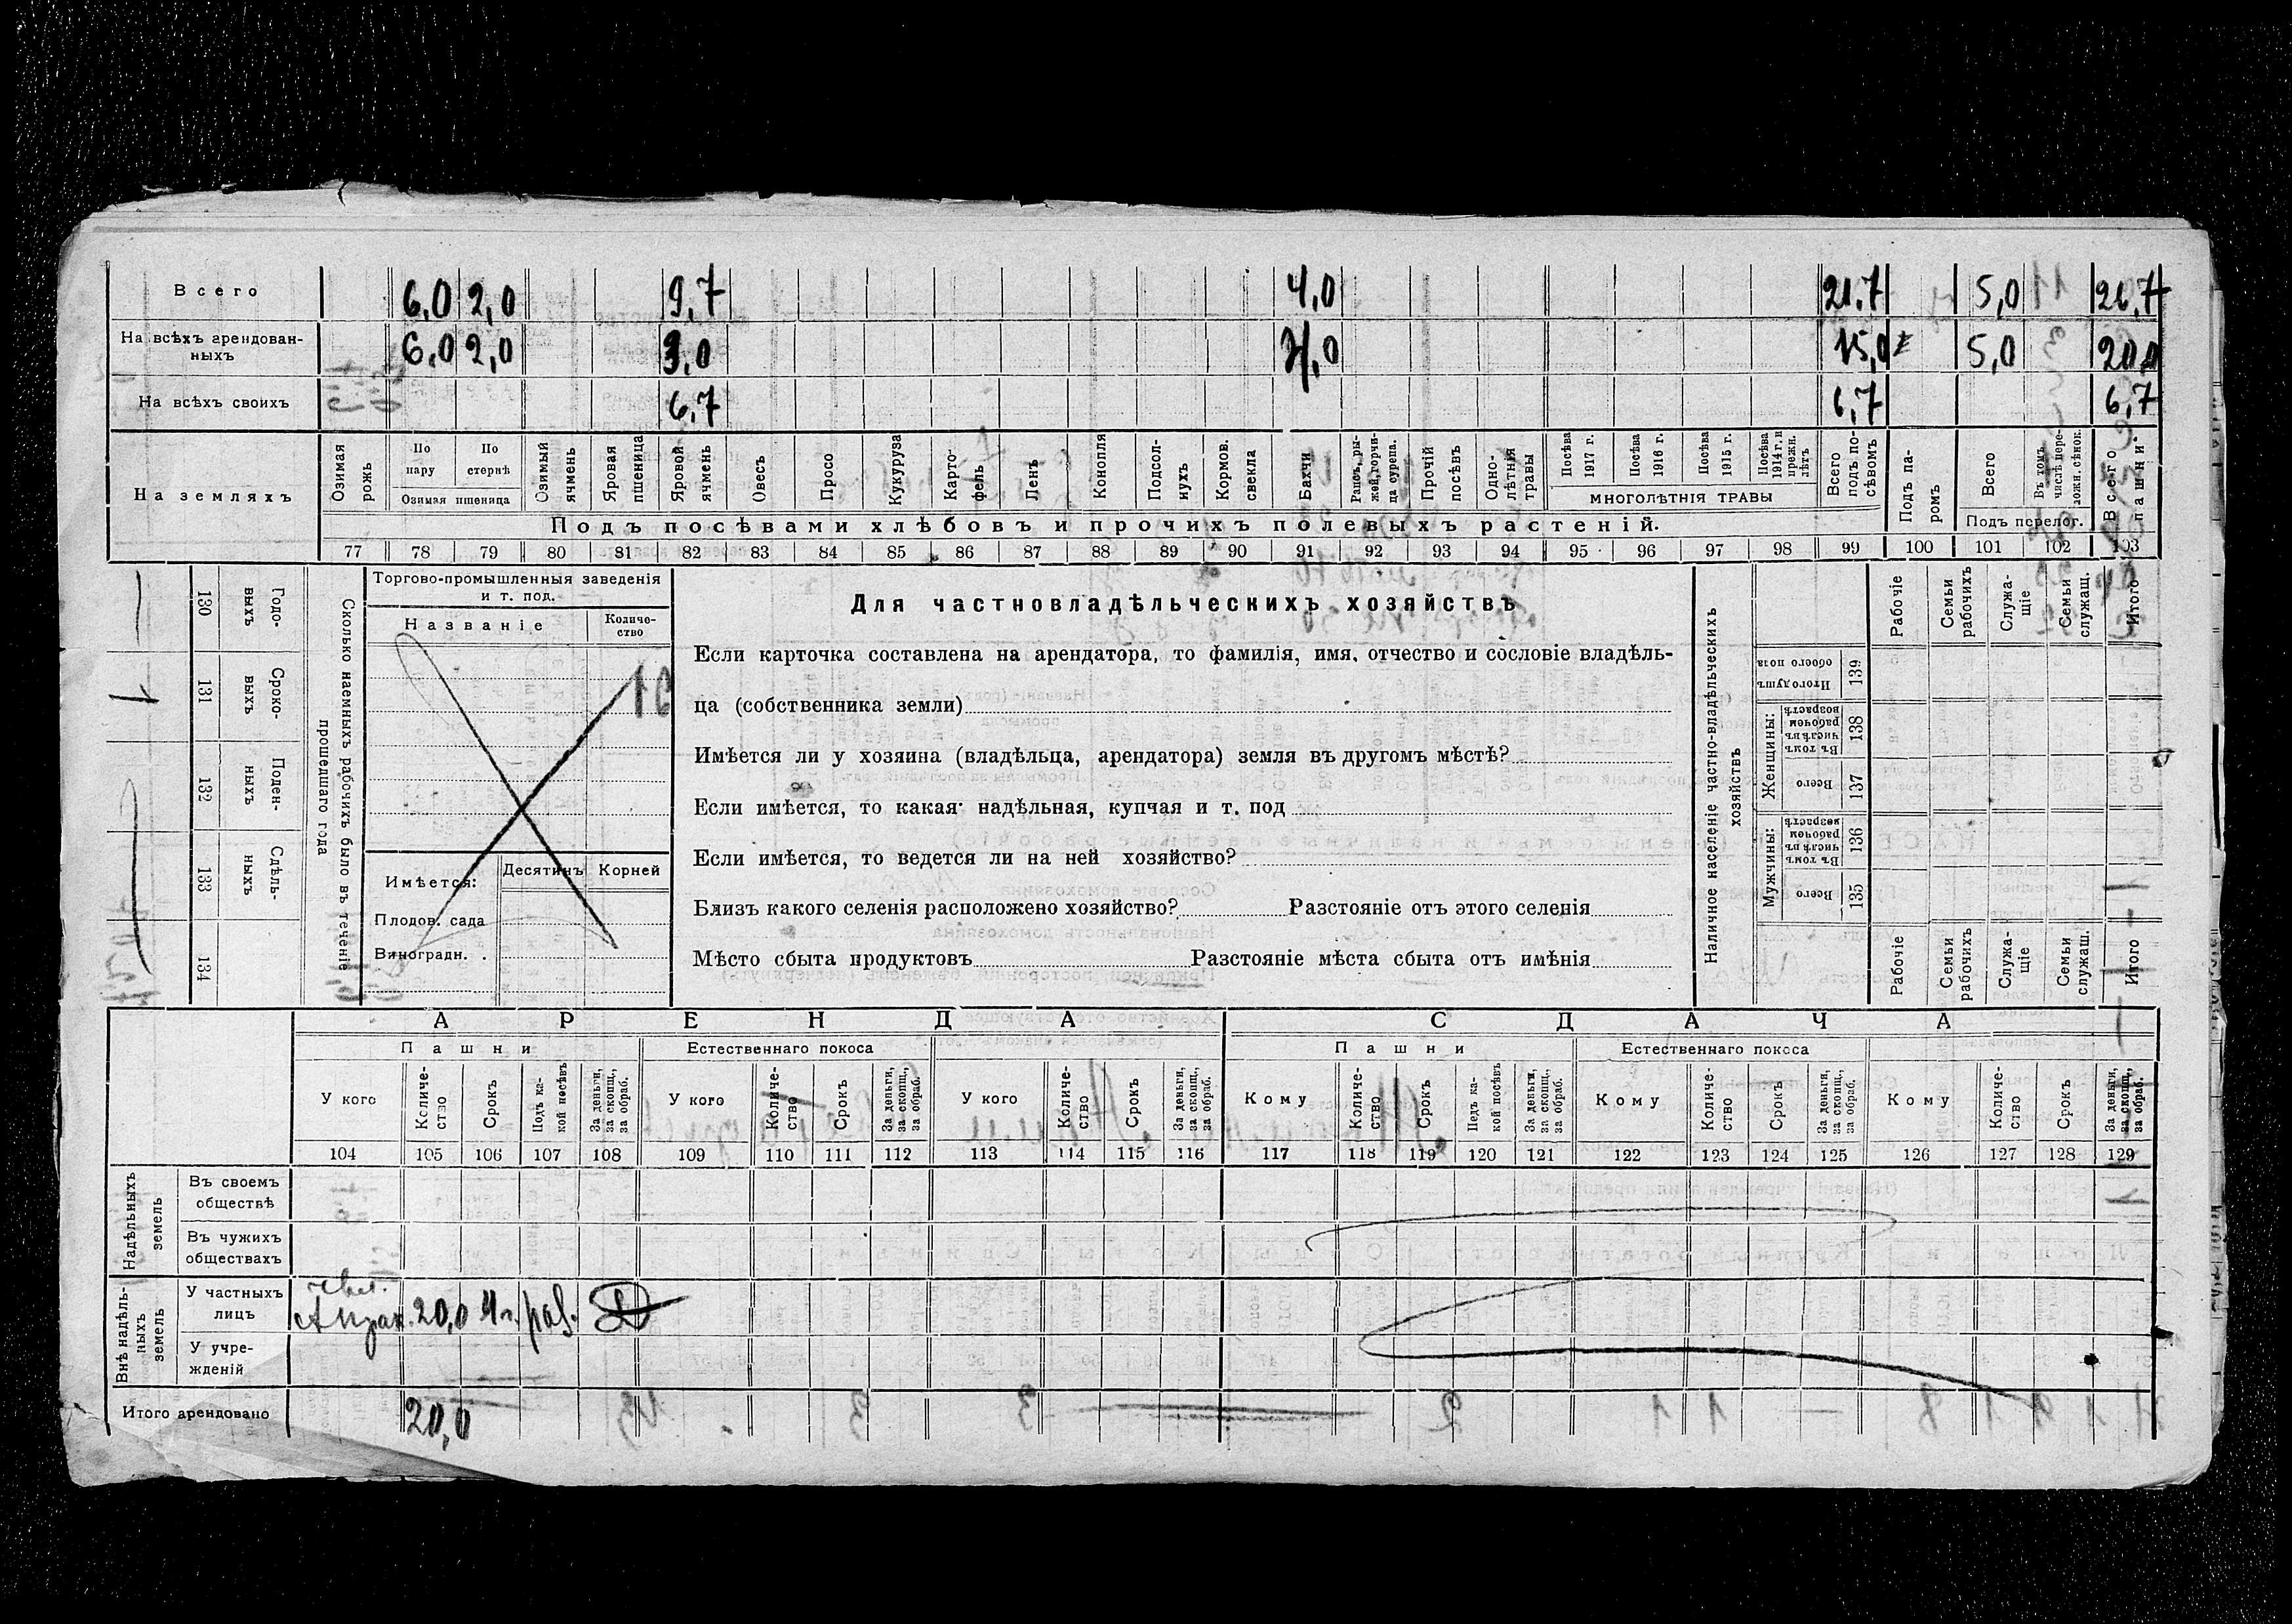 Всего 6,0 2,0 9,7 4,0 21,7 5,0 26,7
На всѣхъ арендован-
ныхъ 6,0 2,0 3,0 4,0 15,0 5,0 20,0
На всѣхъ своихъ 6,7 6,7 6,7
На земляхъ
Озимая рожь
По пару
По стернѣ
Озимая пшеница
Озимый ячмень
Яровая пшеница
Яровой ячмень
Овесъ
Просо
Кукуруза
Карто-
фель
Ленъ
Конопля
Подсол-
нухъ
Кормов.
свекла
Бахчи
Рапсъ, ры-
жей, горчи-
ца сурепа.
Прочій посѣвъ
Одно-
лѣтнія травы
Посѣва 1917 г.
Посѣва 1916 г.
Посѣва 1915 г.
Посѣва 1914 г. и прежн. лѣтъ
МНОГОЛѢТНІЯ ТРАВЫ
Всего подъ по-
сѣвомъ
Подъ па-
ромъ
Всего
Въ томъ числѣ пере-
ложн. сѣнок.
Подъ перелог.
Всего пашни.
Подъ посѣвами хлѣбовъ и прочихъ полевыхъ растеній.
77 78 79 80 81 82 83 84 85 86 87 88 89 90 91 92 93 94 95 96 97 98 99 100 101 102 103
130 Годо-
выхъ
131 Сроко-
выхъ
132 Поден-
ныхъ
133 Сдѣль-
ныхъ
134
Сколько наемныхъ рабочихъ было въ теченіе
прошедшаго года
Торгово-промышленныя заведенія
и т. под.
Названіе
Количе-
ство
Имѣется:
Десятинъ
Корней
Плодов. сада
Виноградн.
Для частновладѣльческихъ хозяйствъ
Если карточка составлена на арендатора, то фамилія, имя, отчество и сословіе владѣль-
ца (собственника земли)
Имѣется ли у хозяина (владѣльца, арендатора) земля въ другомъ мѣстѣ?
Если имѣется, то какая: надѣльная, купчая и т. под
Если имѣется, то ведется ли на ней хозяйство?
Близъ какого селенія расположено хозяйство? Разстояніе отъ этого селенія
Мѣсто сбыта продуктовъ Разстояніе мѣста сбыта отъ имѣнія
Наличное населеніе частно-владѣльческихъ
хозяйствъ
Рабочіе
Семьи рабочихъ
Служа-
щіе
Семьи служащ.
Итого
Итого душъ обоего пола 139
Женщины:
Въ томъ числѣ въ рабочемъ возрастѣ 138
Всего 137
Мужчины:
Въ томъ числѣ въ рабочемъ возрастѣ 136
Всего 135
Рабочіе
Семьи рабочихъ
Служа-
щіе
Семьи служащ.
Итого
АРЕНДА
СДАЧА
Пашни
Естественнаго покоса
Пашни
Естественнаго покоса
У кого
Количе-
ство
Срокъ
Подъ ка-
кой посѣвъ
За деньги, за скопщ., за обраб.
У кого
Количе-
ство
Срокъ
За деньги, за скопщ., за обраб.
У кого
Количе-
ство
Срокъ
За деньги, за скопщ., за обраб.
Кому
Количе-
ство
Срокъ
Подъ ка-
кой посѣвъ
За деньги, за скопщ., за обраб.
Кому
Количе-
ство
Срокъ
За деньги, за скопщ., за обраб.
Кому
Количе-
ство
Срокъ
За деньги, за скопщ., за обраб.
104 105 106 107 108 109 110 111 112 113 114 115 116 117 118 119 120 121 122 123 124 125 126 127 128 129
Надѣльныхъ земель
Въ своемъ
обществѣ
Въ чужихъ
обществахъ
Внѣ надѣль-
ныхъ земель
У частныхъ
лицъ 20,0
У учре-
жденій
Итого арендовано 20,0